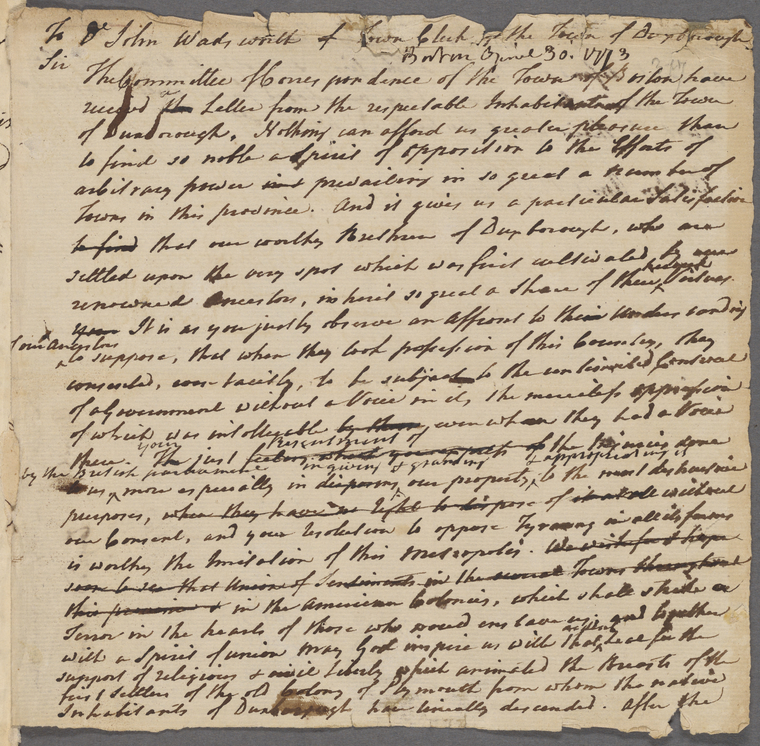 To Dr John Wadsworth Town Clerk of the Town of Duxborough
Boston April 30. 1773
Sir
The Committee of Correspondence of the Town of Boston have
received a Letter from the respectable Inhabitants of the Town
of Duxborough, Nothing can afford us greater pleasure than
to find so noble a Spirit of opposition to the Efforts of
arbitrary power prevailing in so great a Number of
Towns in this province. And it gives us a particular Satisfaction
to find that our worthy Brethren of Duxborough, who are
settled upon the very spot which was first cultivated by our
renowned Ancestors, inherit so great a Share of their Virtues.
It is as you justly observe an affront to their Understanding
to suppose, that when they took possession of this Country, they
your Ancestors
consented, even tacitly, to be subject to the unlimited Controul
of a Government without a Voice in it, the merciless oppression
of which was intollerable even when they had a Voice
there. your just Resentment of the Injuries done
by the British parliament in giving & granting & appropriating it
to us, more especially in disposing our property, to the most destructive
purposes, when they have no right to dispose of it at all without
our Consent, and your resolution to oppose Tyranny in all its forms
is worthy the Imitation of this Metropolis. We wish for & hope
soon to see that Union of Sentiments in the several Towns throughout
this province & in the American Colonies, which shall strike a
Terror in the hearts of those who would enslave us; and together
with a Spirit of union may God inspire us with that Zeal for the
support of religious & civil Liberty which animated the Breasts of the
first settlers of the old Colony of Plymouth from whom the native
Inhabitants of Duxborough have lineally descended. After the